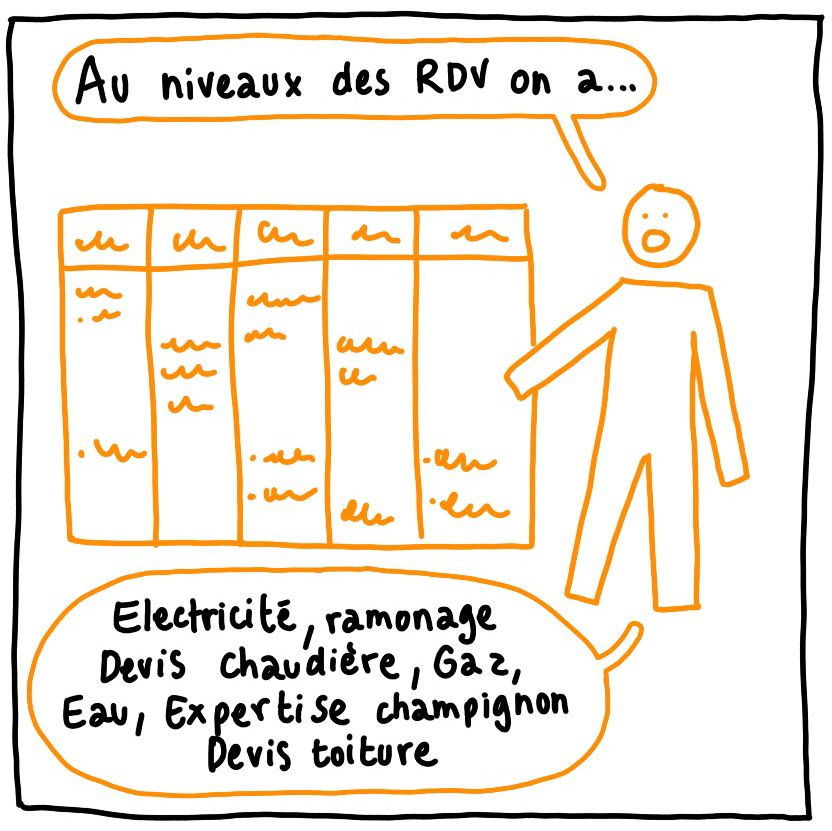 Au niveaux des RDV on a...
Electricité, ramonage
Devis chaudière, Gaz,
Eau, Expertise champignon
Devis toiture